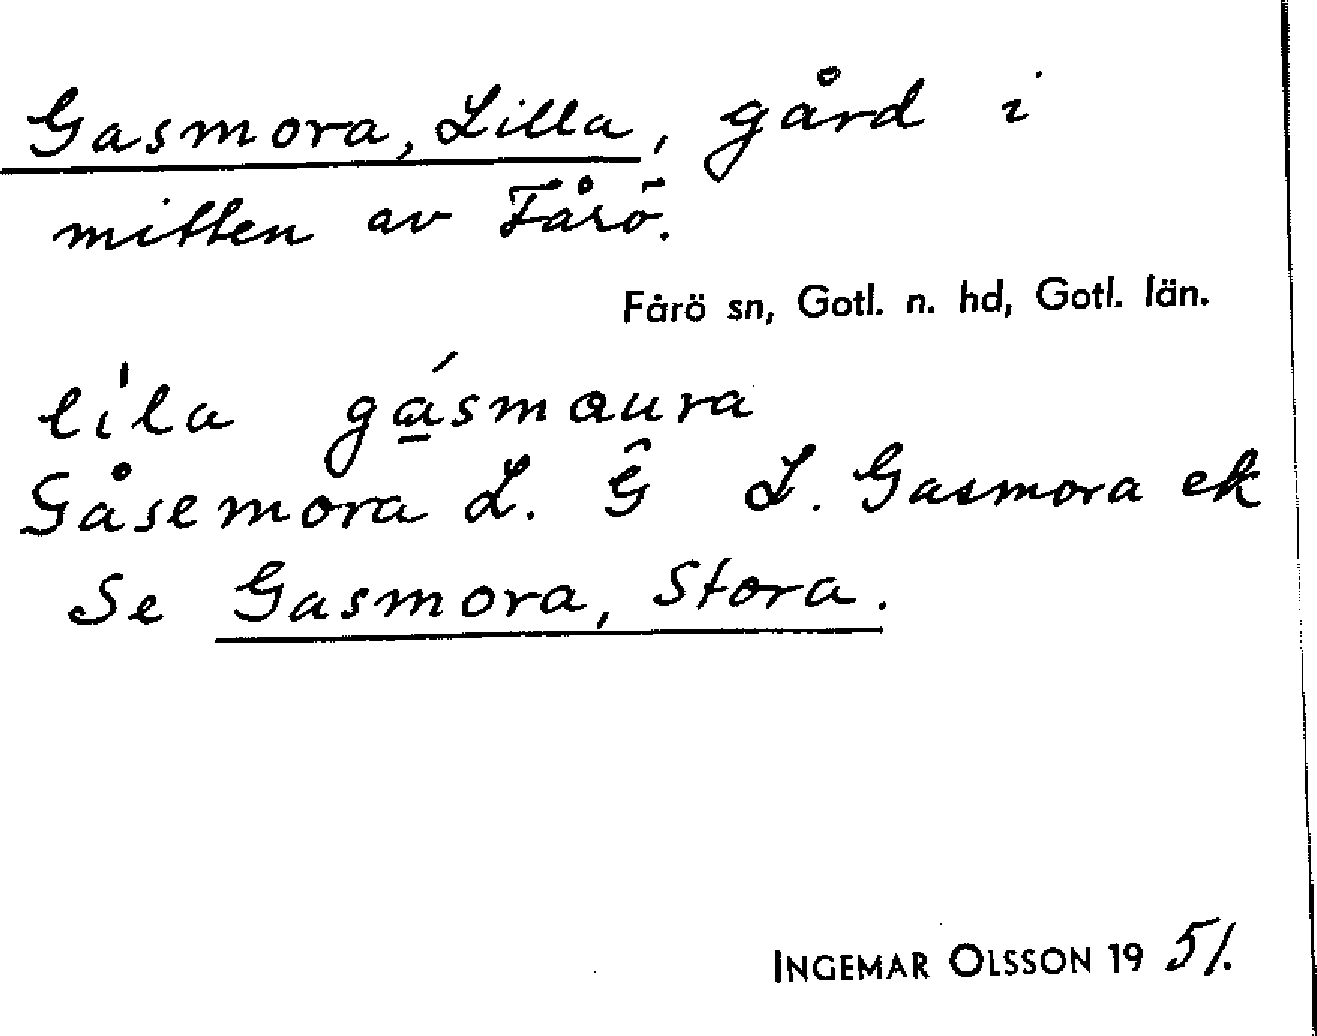 Gasmora, Lilla, gård i
mitten av Fårö.
Fårö sn, Gotl. n. hd, Gotl. län.
li'la ga̲´smaura
Gåsemora L. Ĝ L. Gasmora ek
Se Gasmora, Stora.
INGEMAR OLSSON 1951.